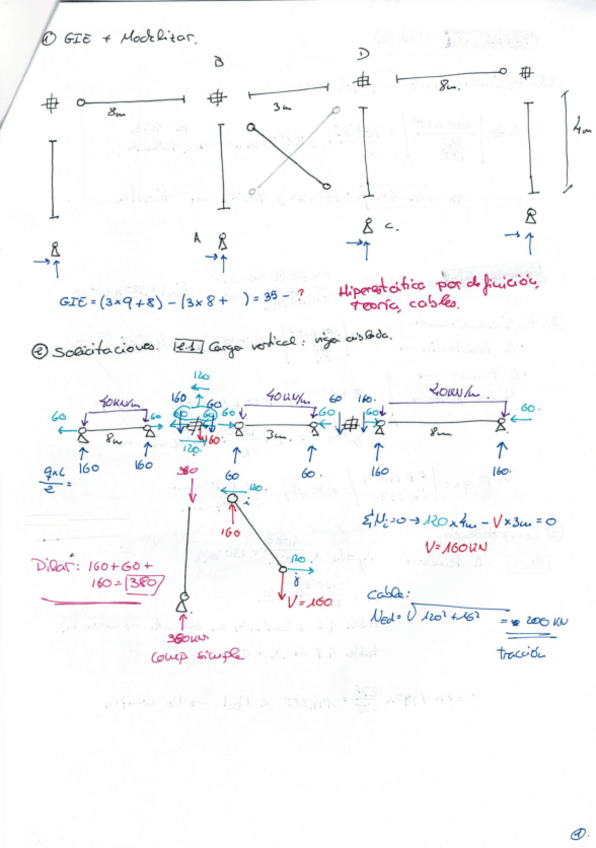 ① GIE + Modelizar.
B
D
8m
3m
8m.
4m
A
C.
GIE = (3×9+8) - (3×8+ ) = 35 - ?
Hiperestática por definición,
teoría, cables.
② Solicitaciones. 2.1 Carga vertical: viga aislada.
120
160
60
60 160.
40KN/m
40KN/m
40KN/m.
60
60
60
60
60
60.
8m
160.
120.
3m.
8m
q×L
2
=
160
160
60
60.
160
160.
380
120.
i
160
120.
j
V=160
ΣMi=0 → 120×4m - V×3m = 0
V=160KN
Pilar: 160+60+
160=380
380KN
Comp simple
cable:
NEd = √120²+16² = 200 KN
tracción
①